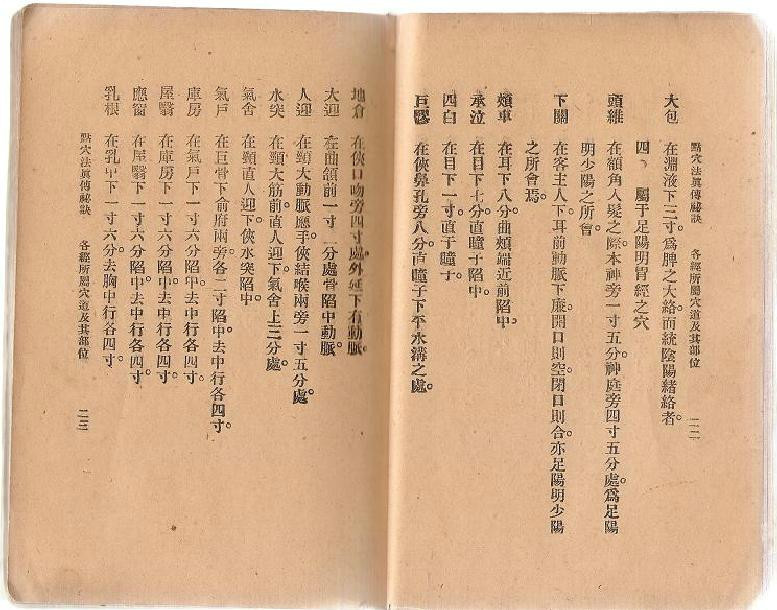 點穴法眞傳祕訣　各經所屬穴道及其部位　二二
大包　在淵液下三寸。爲脾之大絡。而統陰陽緒絡者。
四、屬于足陽明胃經之穴
頭維　在額角入髮之際。本神旁一寸五分。神庭旁四寸五分處。爲足陽
明少陽之所會。
下關　在客主人下。耳前動脈下廉。開口則空。閉口則合。亦足陽明少陽
之所會焉。
頰車　在耳下八分。曲頰端近前陷中。
承泣　在目下七分。直瞳子陷中。
四白　在目下一寸。直于瞳子。
巨髎　在俠鼻孔旁八分。直瞳子。下平水溝之處。
地倉　在俠口吻旁四寸處。外延下有動脈。
大迎　在曲頷前一寸　二分處。骨陷中動脈。
人迎　在頸大動脈應手。俠結喉兩旁一寸五分處。
水突　在頸大筋前。直人迎下氣舍上三分處。
氣舍　在頸直人迎下。俠水突陷中。
氣戶　在巨骨下俞府兩旁。各二寸陷中。去中行各四寸。
庫房　在氣戶下一寸六分陷中。去中行各四寸。
屋翳　在庫房下一寸六分陷中。去中行各四寸。
膺窗　在屋翳下一寸六分陷中。去中行各四寸。
乳根　在乳中下一寸六分。去胸中行各四寸。
點穴法眞傳祕訣　各經所屬穴道及其部位　二三